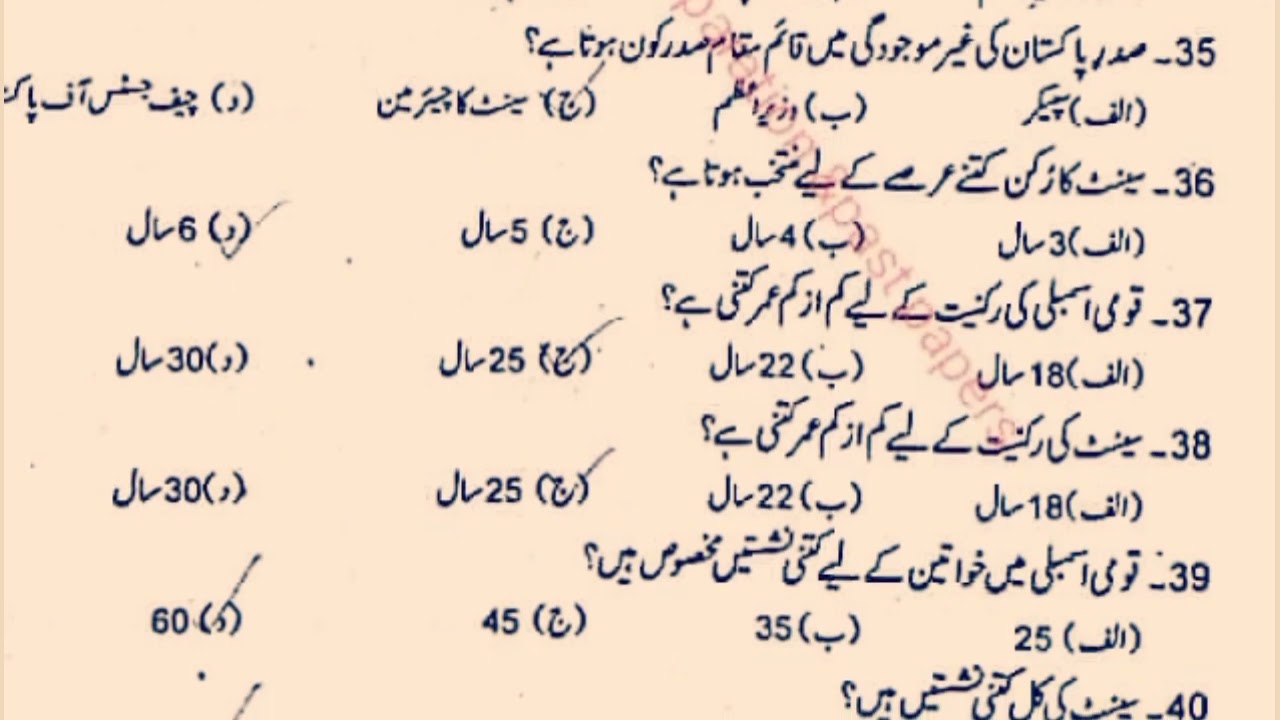 35۔ صدر پاکستان کی غیر موجودگی میں قائم مقام صدر کون ہوتا ہے؟
(الف) سپیکر (ب) وزیراعظم (ج) سینٹ کا چیئرمین (د) چیف جسٹس آف پاک
36۔ سینٹ کا رُکن کتنے عرصے کے لیے منتخب ہوتا ہے؟
(الف) 3 سال (ب) 4 سال (ج) 5 سال (د) 6 سال
37۔ قومی اسمبلی کی رکنیت کے لیے کم از کم عمر کتنی ہے؟
(الف) 18 سال (ب) 22 سال (ج) 25 سال (د) 30 سال
38۔ سینٹ کی رکنیت کے لیے کم از کم عمر کتنی ہے؟
(الف) 18 سال (ب) 22 سال (ج) 25 سال (د) 30 سال
39۔ قومی اسمبلی میں خواتین کے لیے کتنی نشستیں مخصوص ہیں؟
(الف) 25 (ب) 35 (ج) 45 (د) 60
40۔ سینٹ کی کل کتنی نشستیں ہیں؟
paration &past papers